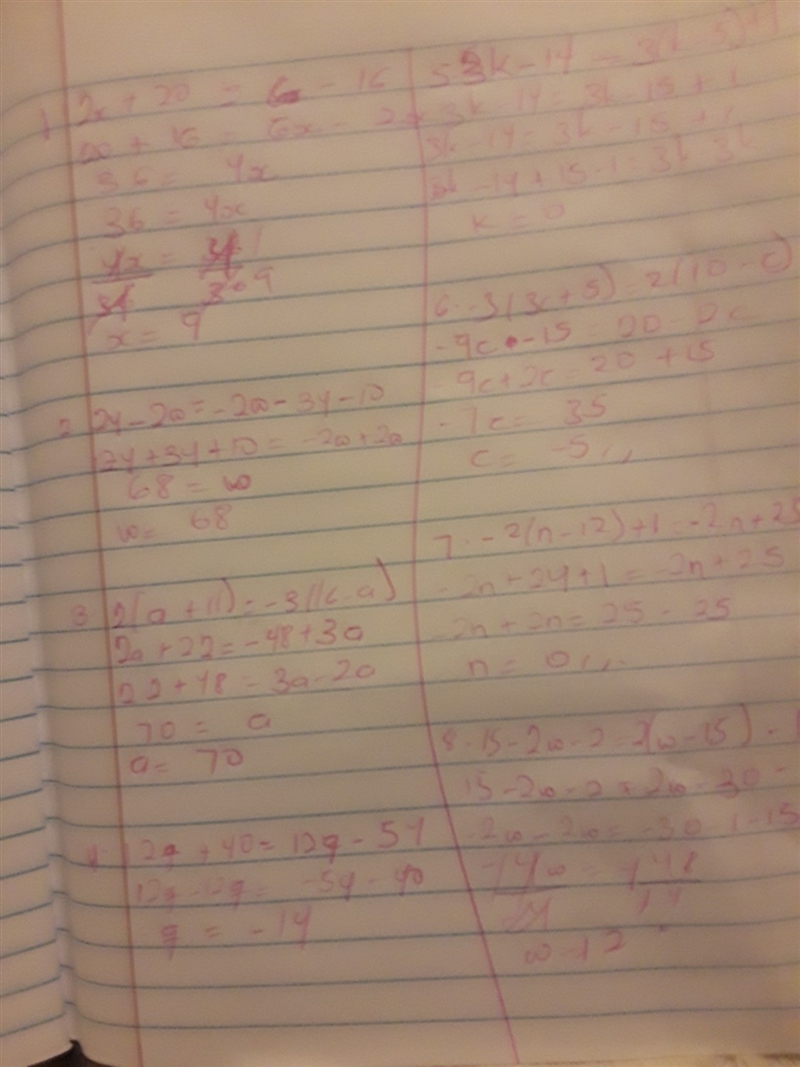 1 2x + 20 = 6x - 16
20 + 16 = 6x - 2x
36 = 4x
36 = 4x
4x =
x = 9
2 24 - 2w = -2w - 34 - 10
24 + 34 + 10 = -2w + 2w
68 = w
w = 68
3 2(a + 11) = -3(16 - a)
2a + 22 = -48 + 3a
22 + 48 = 3a - 2a
70 = a
a = 70
4 12q + 40 = 12q - 54
12q - 12q = -54 - 40
q = -14
5 3k - 14 = 3(k - 5) + 1
3k - 14 = 3k - 15 + 1
3k - 14 = 3k - 15 + 1
-14 + 15 - 1 = 3k - 3k
k = 0
6. -3(3c + 5) = 2(10 - c)
-9c - 15 = 20 - 2c
9c + 2c = 20 + 15
-7c = 35
c = -5,,
7. -2(n - 12) + 1 = -2n + 25
-2n + 24 + 1 = -2n + 25
-2n + 2n = 25 - 25
n = 0,,.
8. 15 - 2w - 2 2(w - 15) -
15 - 2w - 2 = 2w - 30 -
-2w - 2w = -30 - 15
w = 12